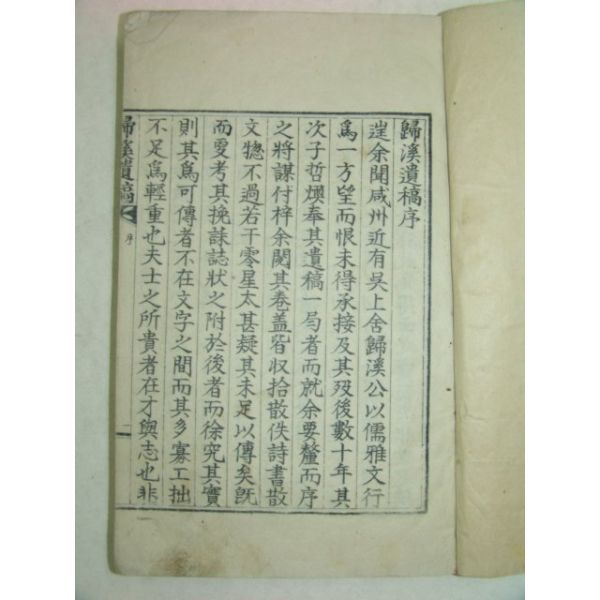 歸溪遺稿序
逞余聞咸州近有吳上舍歸溪公以儒雅文行
爲一方望而恨未得承接及其歿後數十年其
次子哲煥奉其遺稿一局者而就余要釐而序
之將謀付梓余閱其卷盖皆収拾散佚詩書散
文惣不過若干零星太甚疑其未足以傳矣旣
而更考其挽誄誌狀之附於後者而徐究其實
則其爲可傳者不在文字之間而其多寡工拙
不足爲輕重也夫士之所貴者在才與志也非
歸溪遺稿
序
一